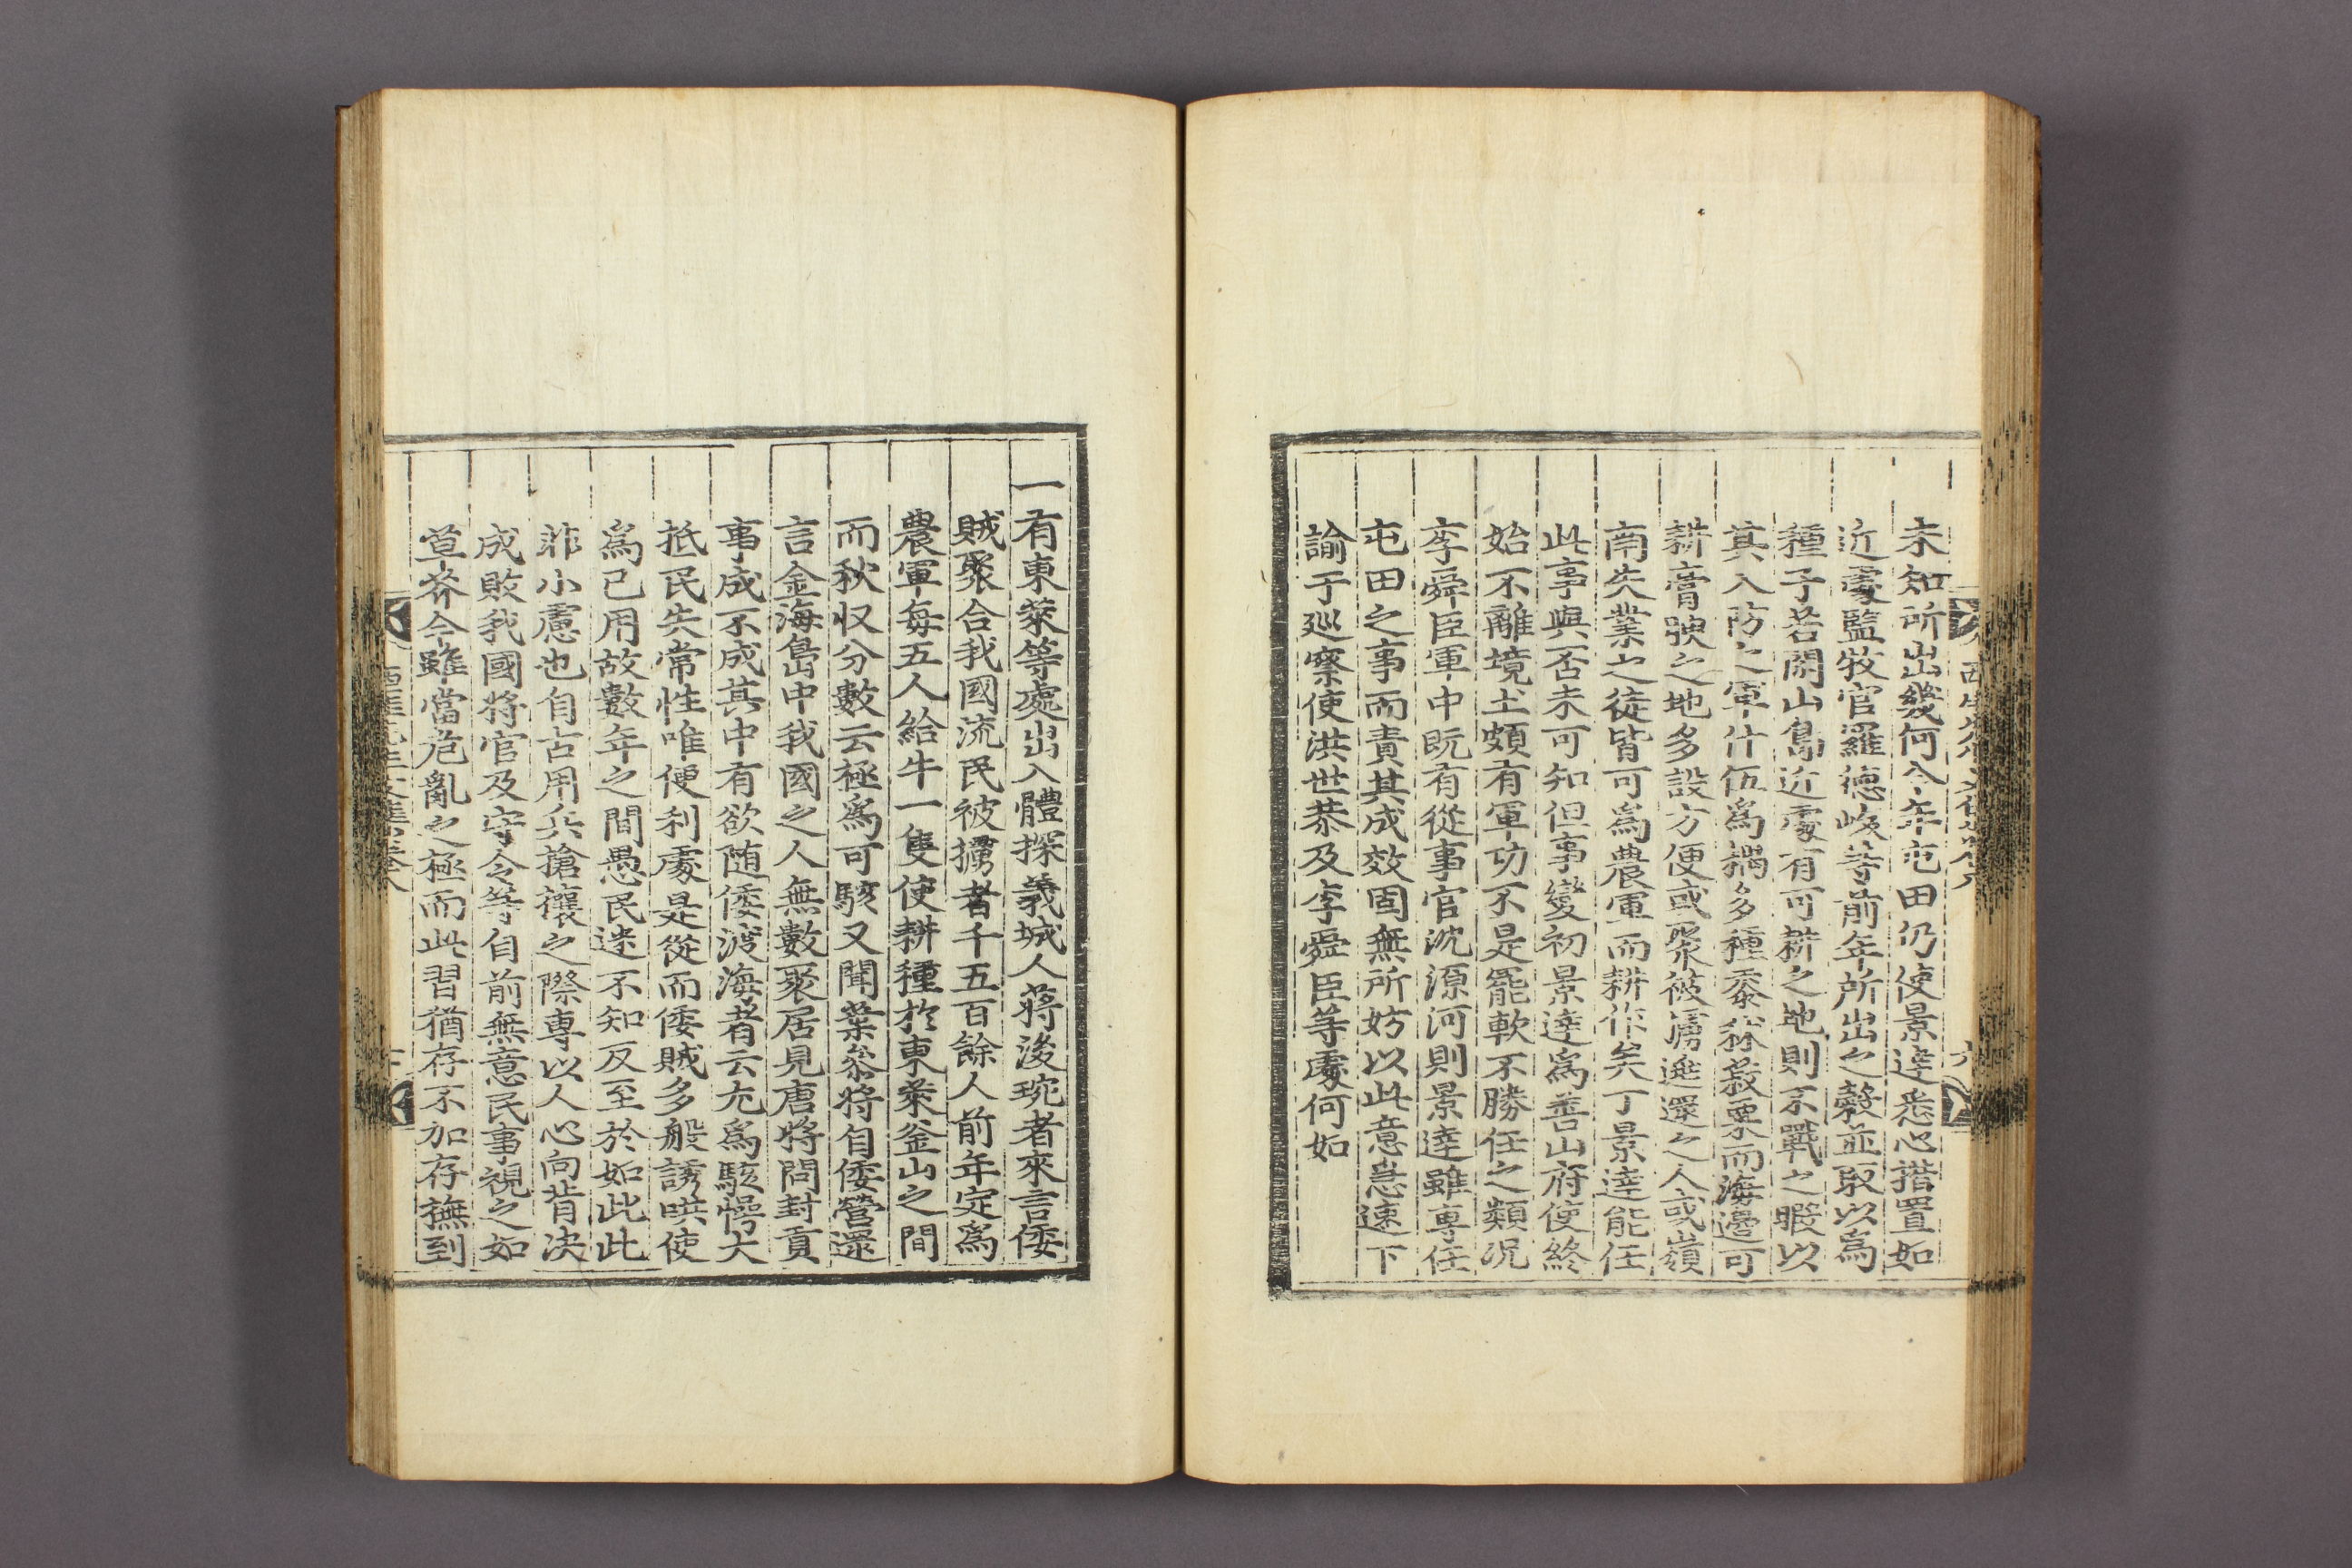 未知所出幾何今年屯田仍使景達悉心措置如
近處監牧官羅德峻等前年所出之穀並取以爲
種子若閑山島近處有可耕之地則不戰之暇以
其入防之軍什伍爲耦多種黍秫菽粟而海邊可
耕膏腴之地多設方便或聚被虜逃還之人或嶺
南失業之徒皆可爲農軍而耕作矣丁景達能任
此事與否未可知但事變初景達爲善山府使終
始不離境土頗有軍功不是罷軟不勝任之類況
李舜臣軍中旣有從事官沈源河則景達雖專任
屯田之事而責其成效固無所妨以此意急速下
諭于巡察使洪世恭及李舜臣等處何如
一有東萊等處出入體探義城人蔣浚琬者來言倭
賊聚合我國流民被擄者千五百餘人前年定爲
農軍每五人給牛一隻使耕種於東萊釜山之間
而秋収分數云極爲可駭又聞葉叅將自倭營還
言金海島中我國之人無數聚居見唐將問封貢
事成不成其中有欲随倭渡海者云尤爲駭愕大
抵民失常性唯便利處是從而倭賊多般誘哄使
爲已用故數年之間愚民迷不知反至於如此此
非小慮也自古用兵搶攘之際專以人心向背决
成敗我國將官及守令等自前無意民事視之如
苴芥今雖當危亂之極而此習猶存不加存撫到
西厓先生文集卷之八
六